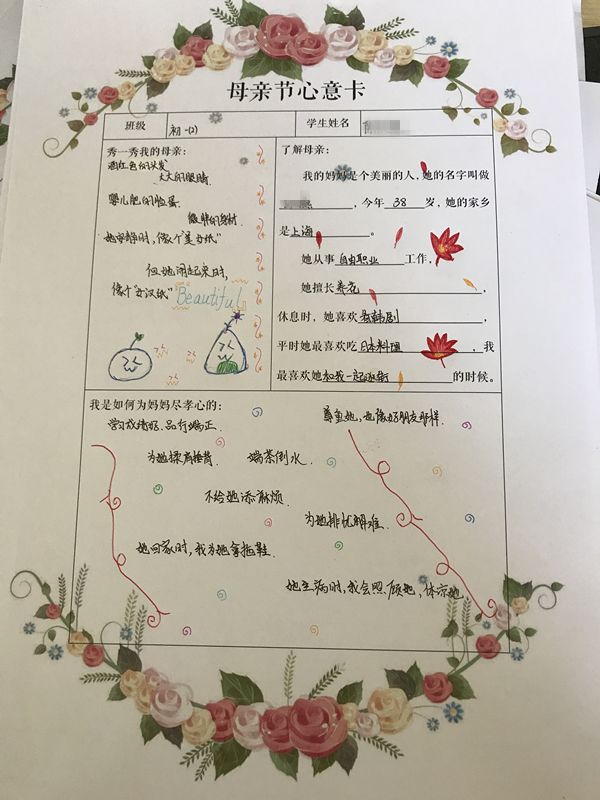 母亲节心意卡
班级 初一(2) 学生姓名
秀一秀我的母亲:
酒红色的头发
大大的眼睛
婴儿肥的脸蛋
微胖的身材
她安静时,像个“美女纸”
但她闹起来时,
像个“女汉纸”
Beautiful
了解母亲:
我的妈妈是个美丽的人,她的名字叫做
,今年 38 岁,她的家乡
是上海。
她从事自由职业工作,
她擅长养花,
休息时,她喜欢看韩剧,
平时她最喜欢吃日本料理,我
最喜欢她和我一起逛街的时候。
我是如何为妈妈尽孝心的:
学习成绩好、品行端正
尊重她,也像好朋友那样.
为她揉肩捶背
端茶倒水.
不给她添麻烦.
为她排忧解难.
她回家时,我为她拿拖鞋.
她生病时,我会照顾她,体凉她